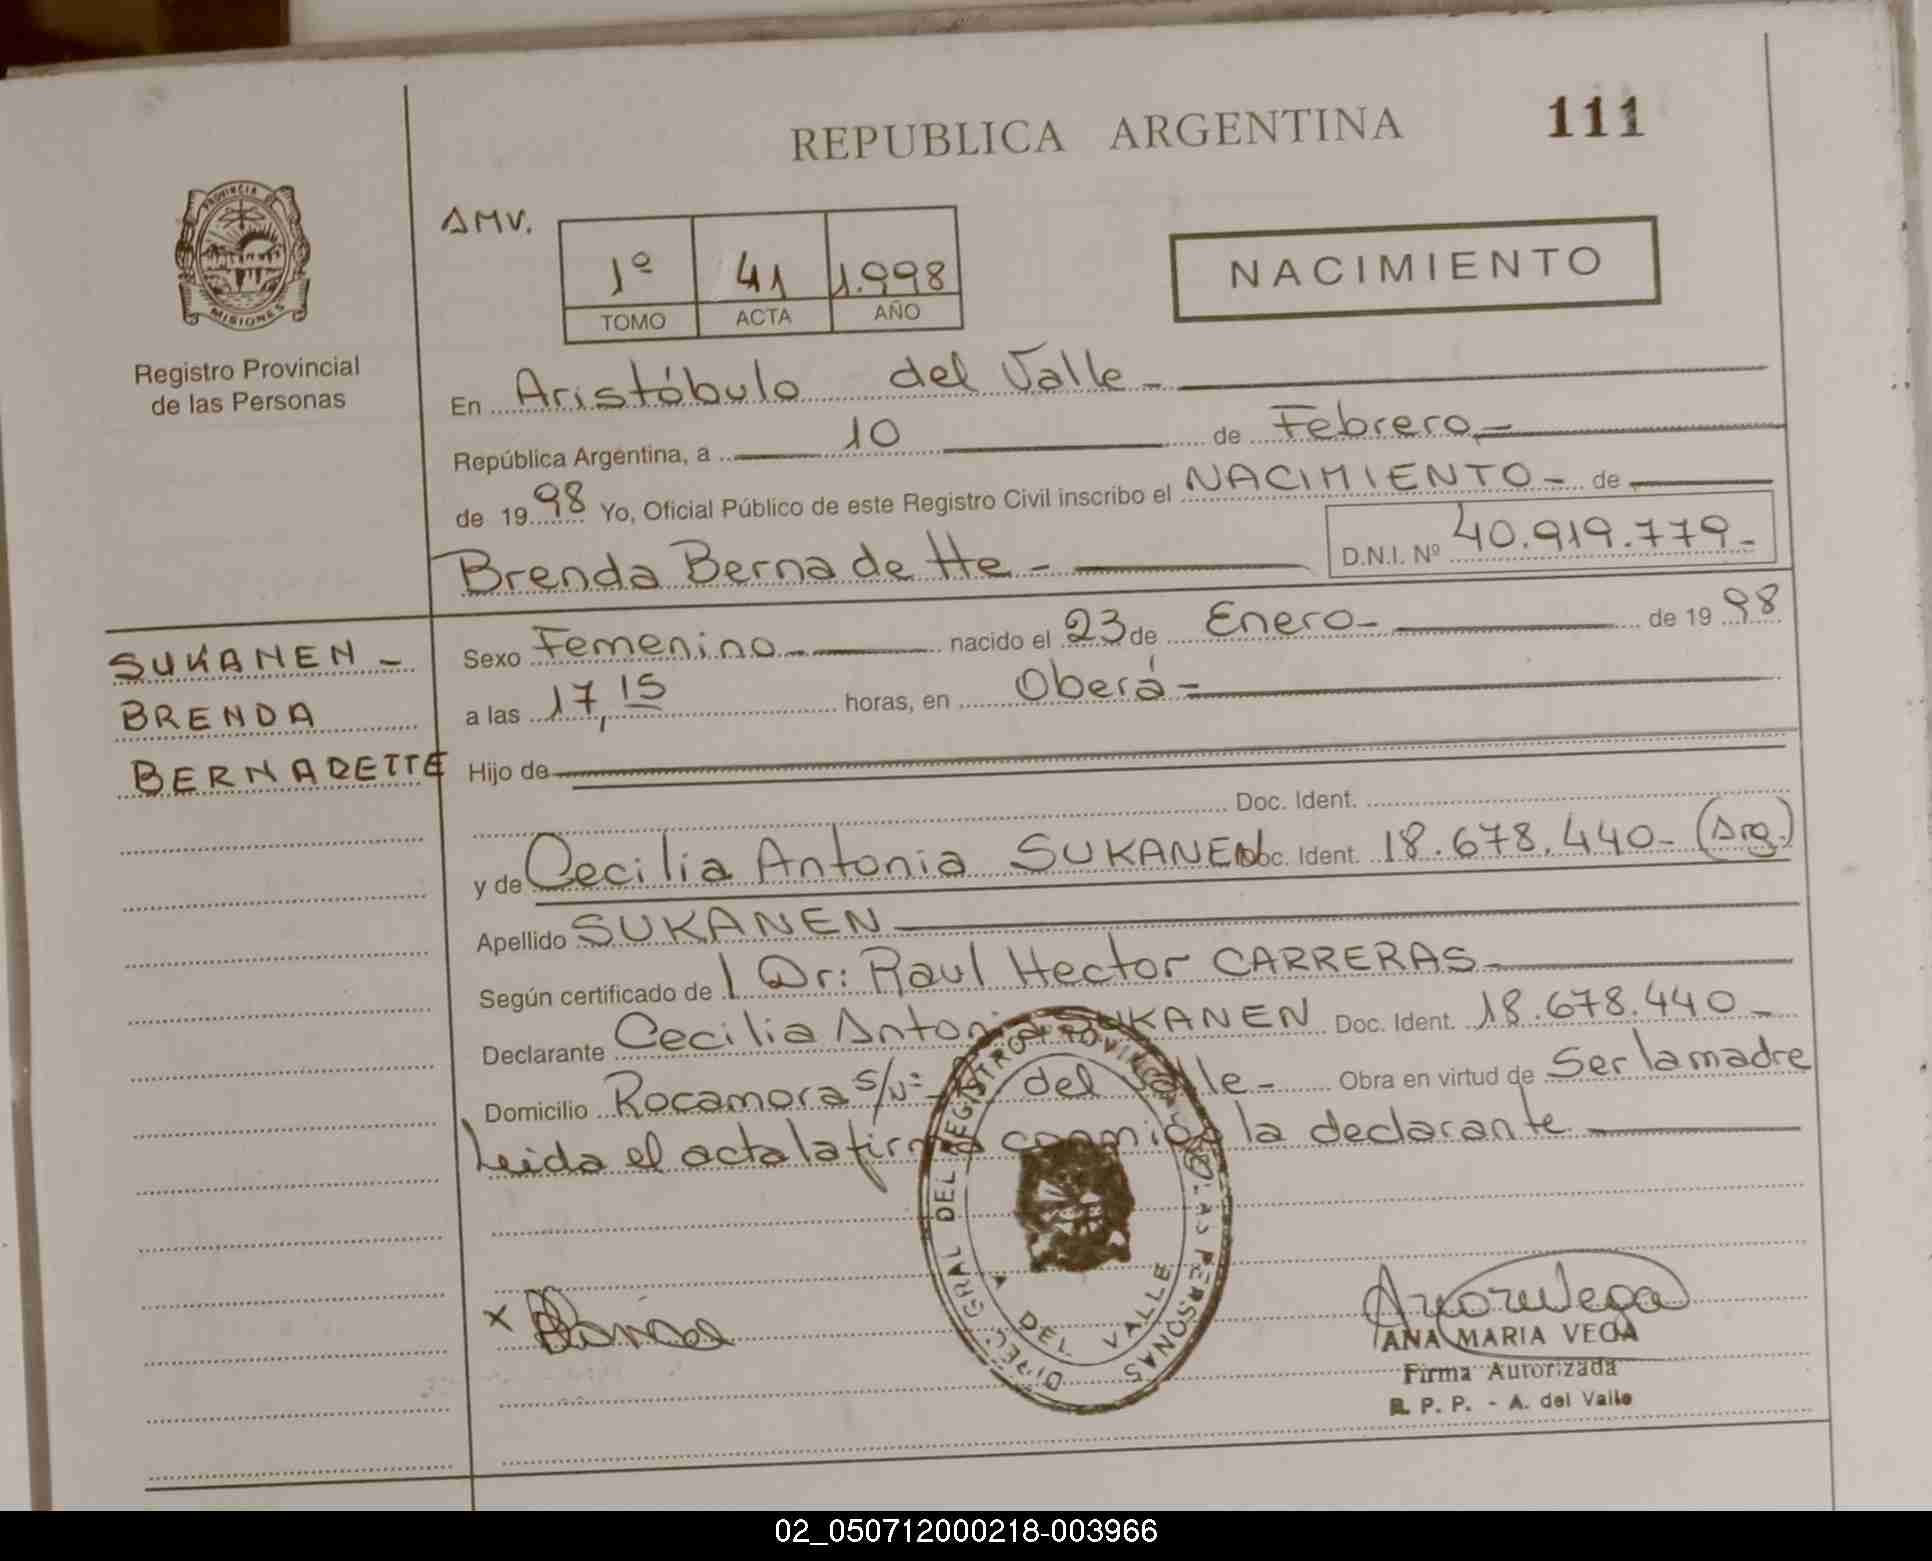 REPUBLICA ARGENTINA
111
PROVINCIA DE
MISIONES
Registro Provincial
de las Personas
AMV.
1º 41 1.998
TOMO ACTA AÑO
NACIMIENTO
En Aristóbulo del Valle-
República Argentina, a 10 de Febrero-
de 1998 Yo, Oficial Público de este Registro Civil inscribo el NACIMIENTO- de
Brenda Bernadette- D.N.I. Nº 40.919.779-
SUKANEN-
BRENDA
BERNADETTE
Sexo Femenino- nacido el 23 de Enero- de 1998
a las 17,15 horas, en Oberá-
Hijo de
Doc. Ident.
y de Cecilia Antonia SUKANEN Doc. Ident. 18.678.440- (Arg.)
Apellido SUKANEN
Según certificado de l Dr: Raul Hector CARRERAS-
Declarante Cecilia Antonia SUKANEN Doc. Ident. 18.678.440-
Domicilio Rocamora s/nº- del Valle- Obra en virtud de Ser la madre
Leida el acta la firma conmigo la declarante
DIREC. GRAL DEL REGISTRO PROVINCIAL DE LAS PERSONAS
A DEL VALLE
X
ANA MARIA VEGA
Firma Autorizada
R. P. P. - A. del Valle
02_050712000218-003966